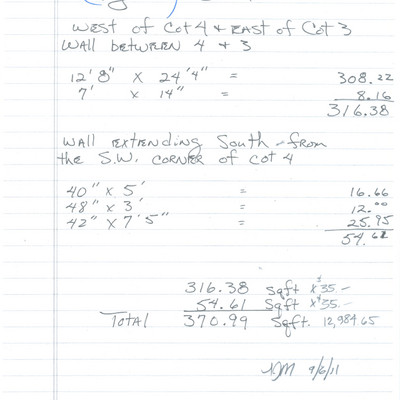 WEST of Cot 4 & EAST of Cot 3
WALL between 4 & 3
12' 8" X 24' 4" = 308.22
7' X 14" = 8.16
316.38
WALL EXTENDING South - from
the S.W. CORNER of Cot 4
40" X 5' = 16.66
48" X 3' = 12.00
42" X 7' 5" = 25.95
54.61
316.38 Sqft X $35.-
54.61 Sqft X $35.-
TOTAL 370.99 Sqft. 12,984.65
9/6/11